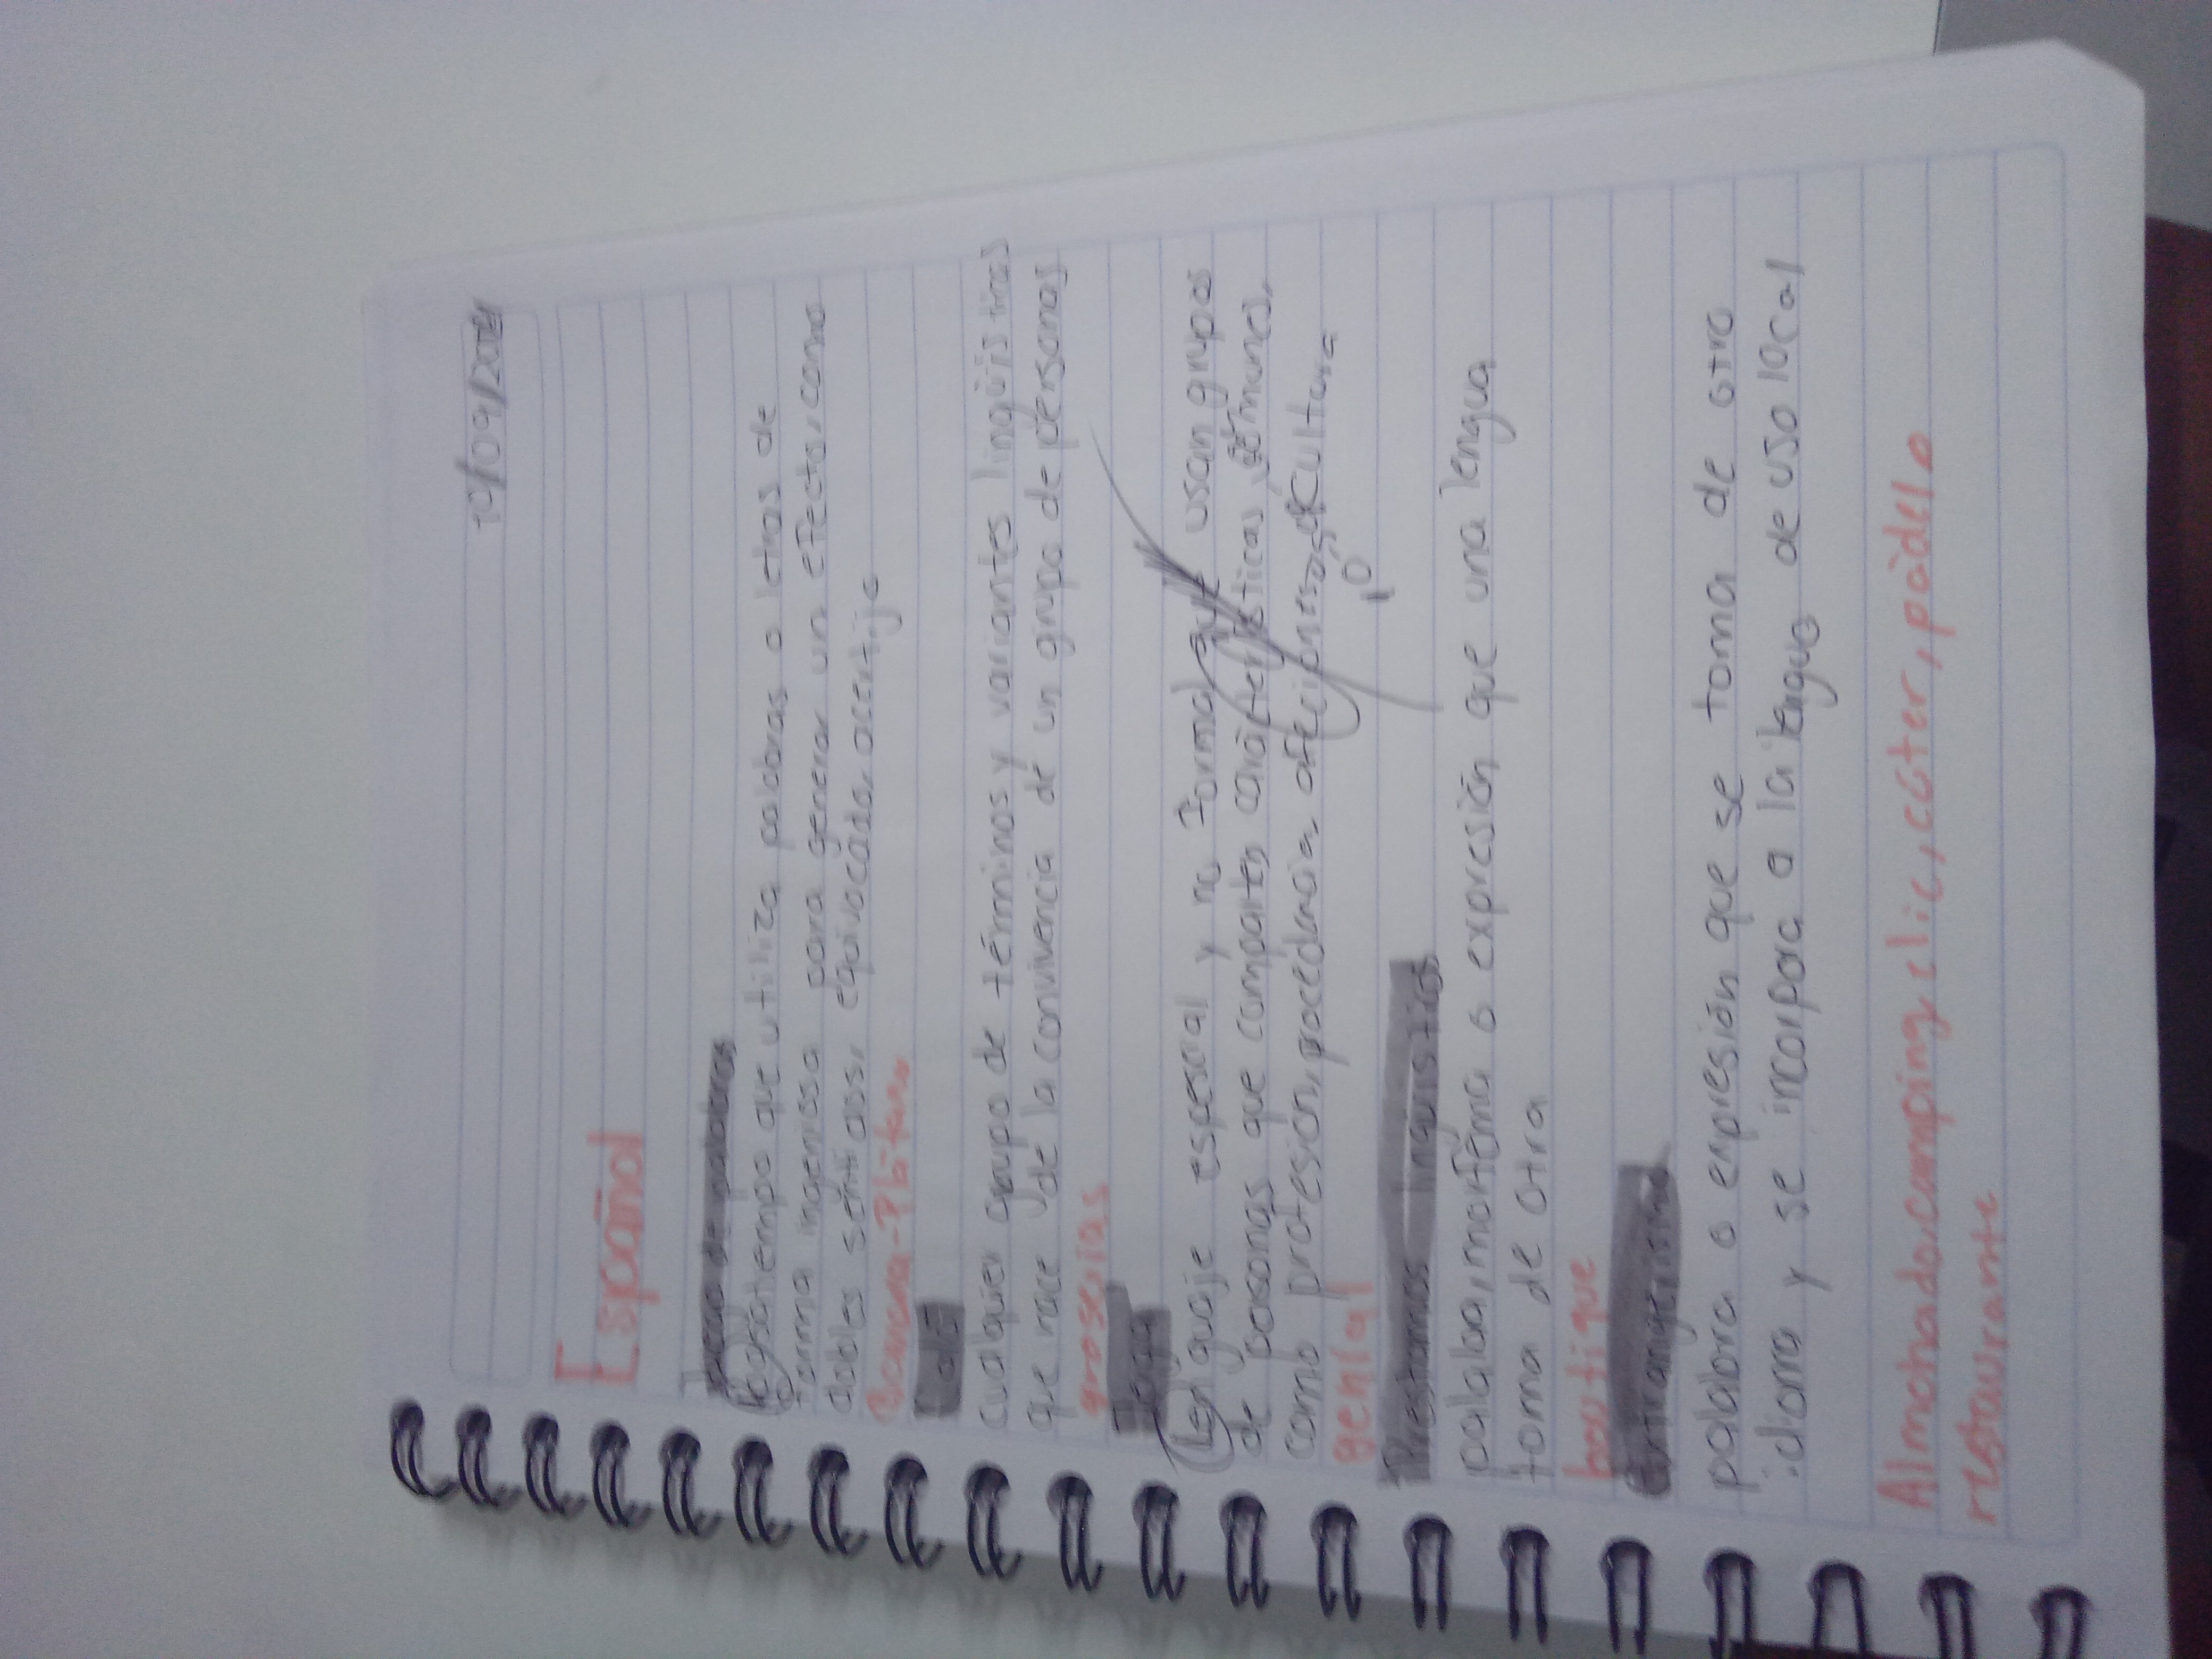 /09/20
Español
Juego de palabras
Pasatiempo que utiliza palabras o letras de
forma ingeniosa para generar un efecto, como
dobles sentidos, equivocada, acertijo
Cualquier grupo de términos y variantes lingüísticas
que nace de la convivencia de un grupo de personas
groserias
Jerga
Lenguaje especial y no formal que usan grupos
de personas que comparten características
como profesión, procedencia, aficiones o cultura
10
genial
Prestamos linguisticos
palabra, morfema o expresión que una lengua
toma de otra
boutique
Extrangerismo
palabra o expresión que se toma de otro
idioma y se incorpora a la lengua de uso local
Almohada, camping, clic, cúter, pádel o
restaurante